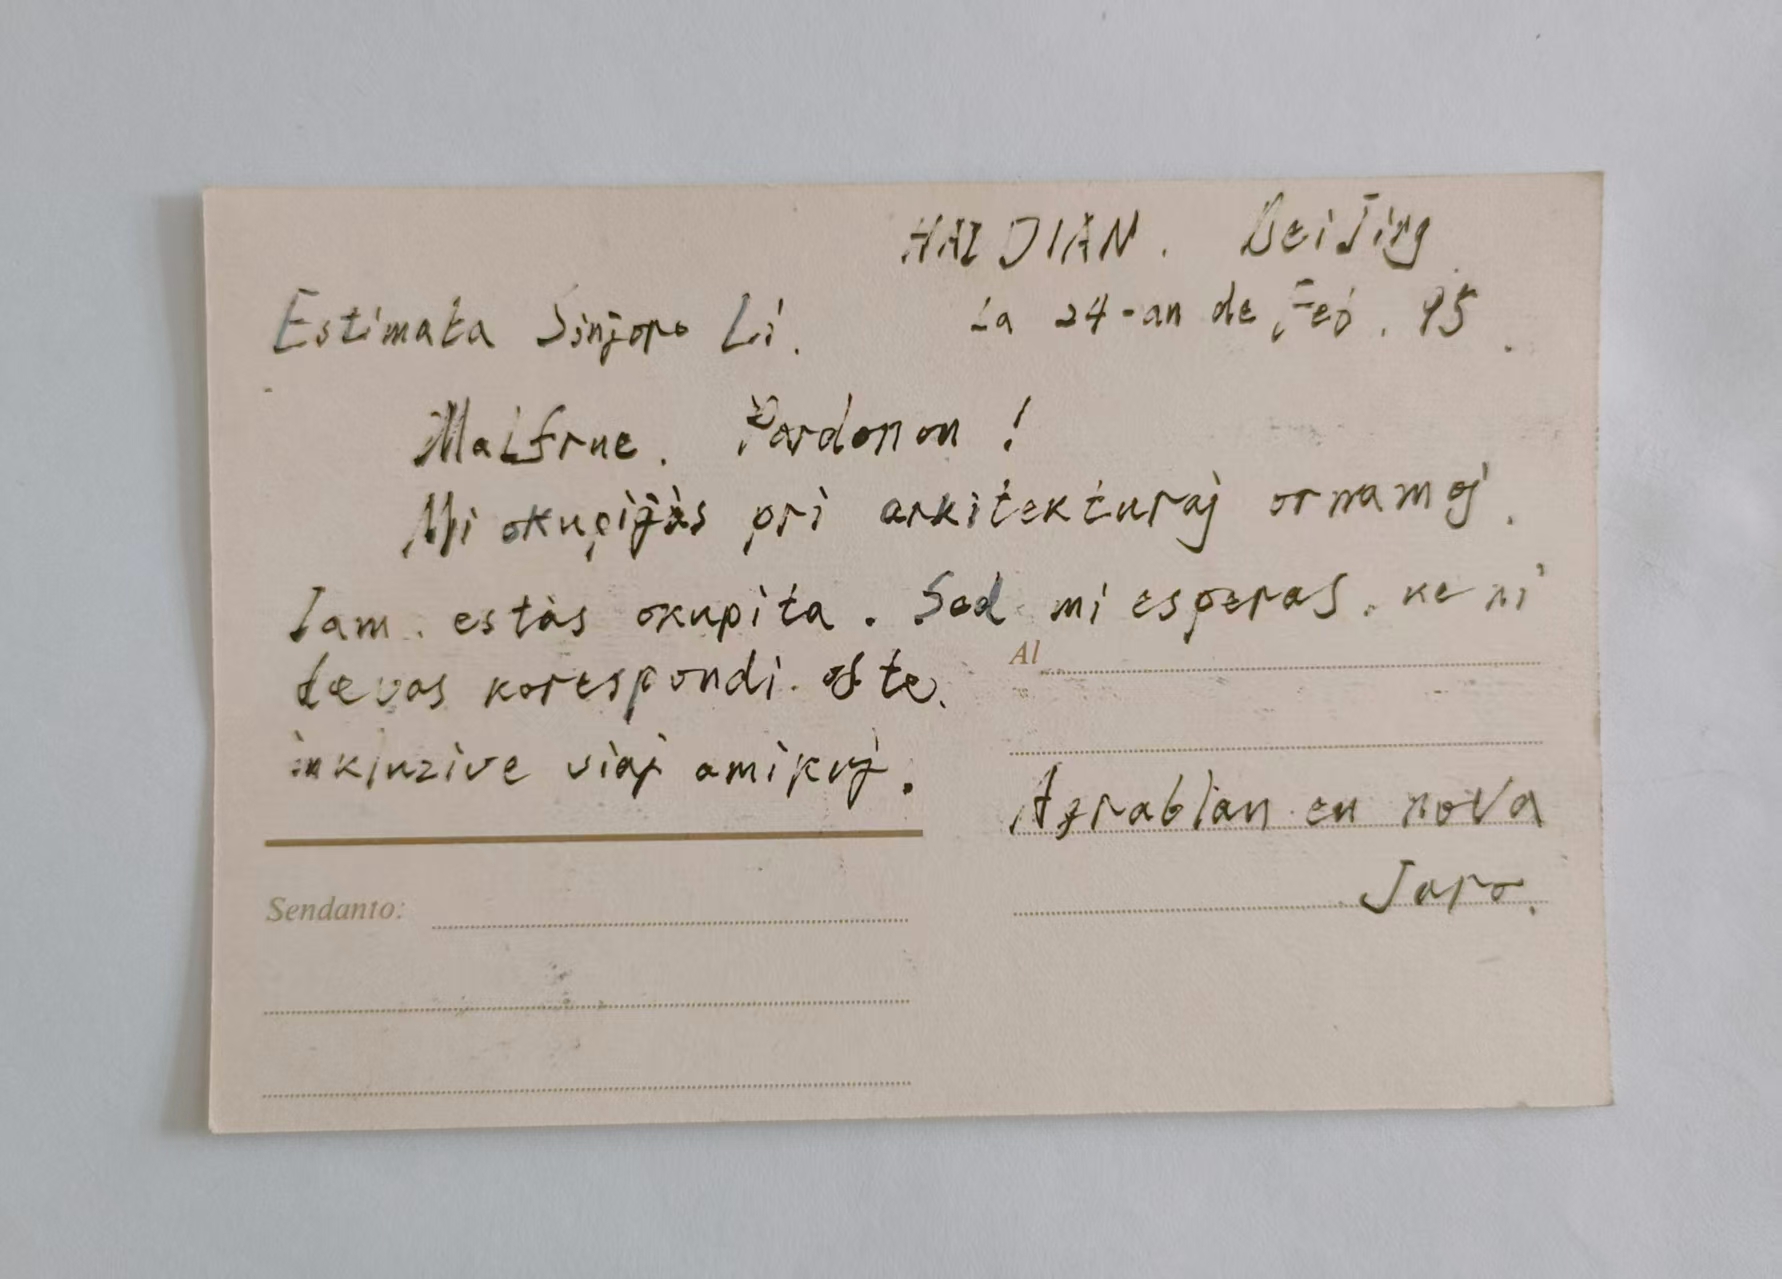 HAIDIAN. BeiJing
Estimata Sinjoro Li. La 24-an de Feb. 95.
Malfrue. Pardonon!
Mi okupiĝas pri arkitekturaj ornamoj.
Iam. estas okupita. Sed mi esperas. ke ni
Al
devas korespondi. ofte.
inkluzive viaj amikoj.
Agrablan en nova
Jaro.
Sendanto: